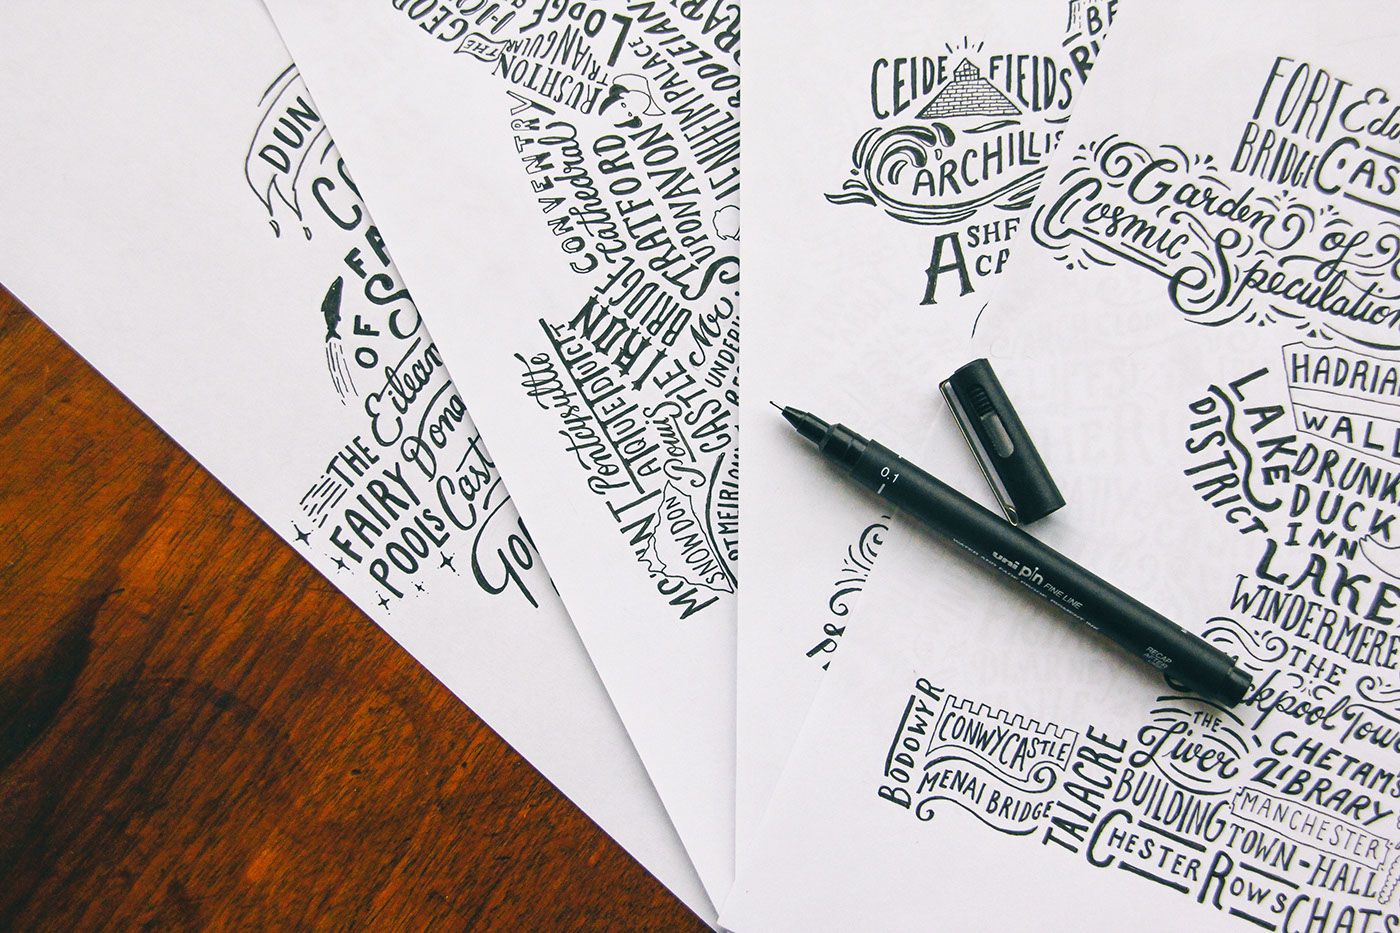 DUN
OF
THE
FAIRY
POOLS
Eilean
Dona
Cast
GEOR
THE
RUSHTON
TRIANGULAR
LODGE
COVENTRY
Cathedral
STRATFORD
UPON AVON
BLENHEIM PALACE
BODLEIAN
IRON
BRIDGE
Pontcysyllte
AQUEDUCT
Powis
CASTLE
Mr.
UNDER
MOUNT
SNOWDON
CEIDE FIELDS
ARCHILLIS
ASHF
CA
BE
FORT
BRIDGE
Cas
Garden of
Cosmic Speculation
HADRIA
WALL
LAKE
DISTRICT
DRUNK
DUCK
INN
LAKE
WINDERMERE
THE
ckpool Towe
THE
Liver
BUILDING
CHETAMS
LIBRARY
MANCHESTER
TOWN-HALL
BODOWYR
CONWY CASTLE
MENAI BRIDGE
TALACRE
CHESTER ROWS
CHATS
0.1
uni pin FINE LINE
RECAP
AFTER